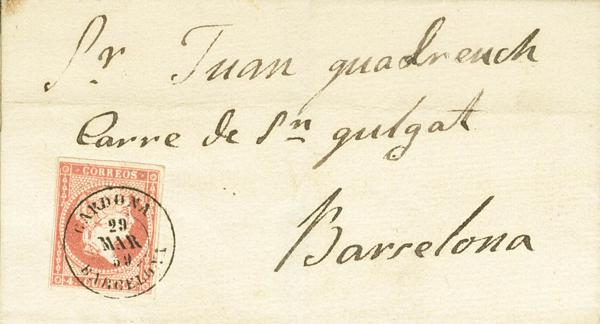 Sr Juan quadrench
Carre de Sn gulgat
Barselona
CORREOS
CARDONA
29
MAR
59
BARCELONA